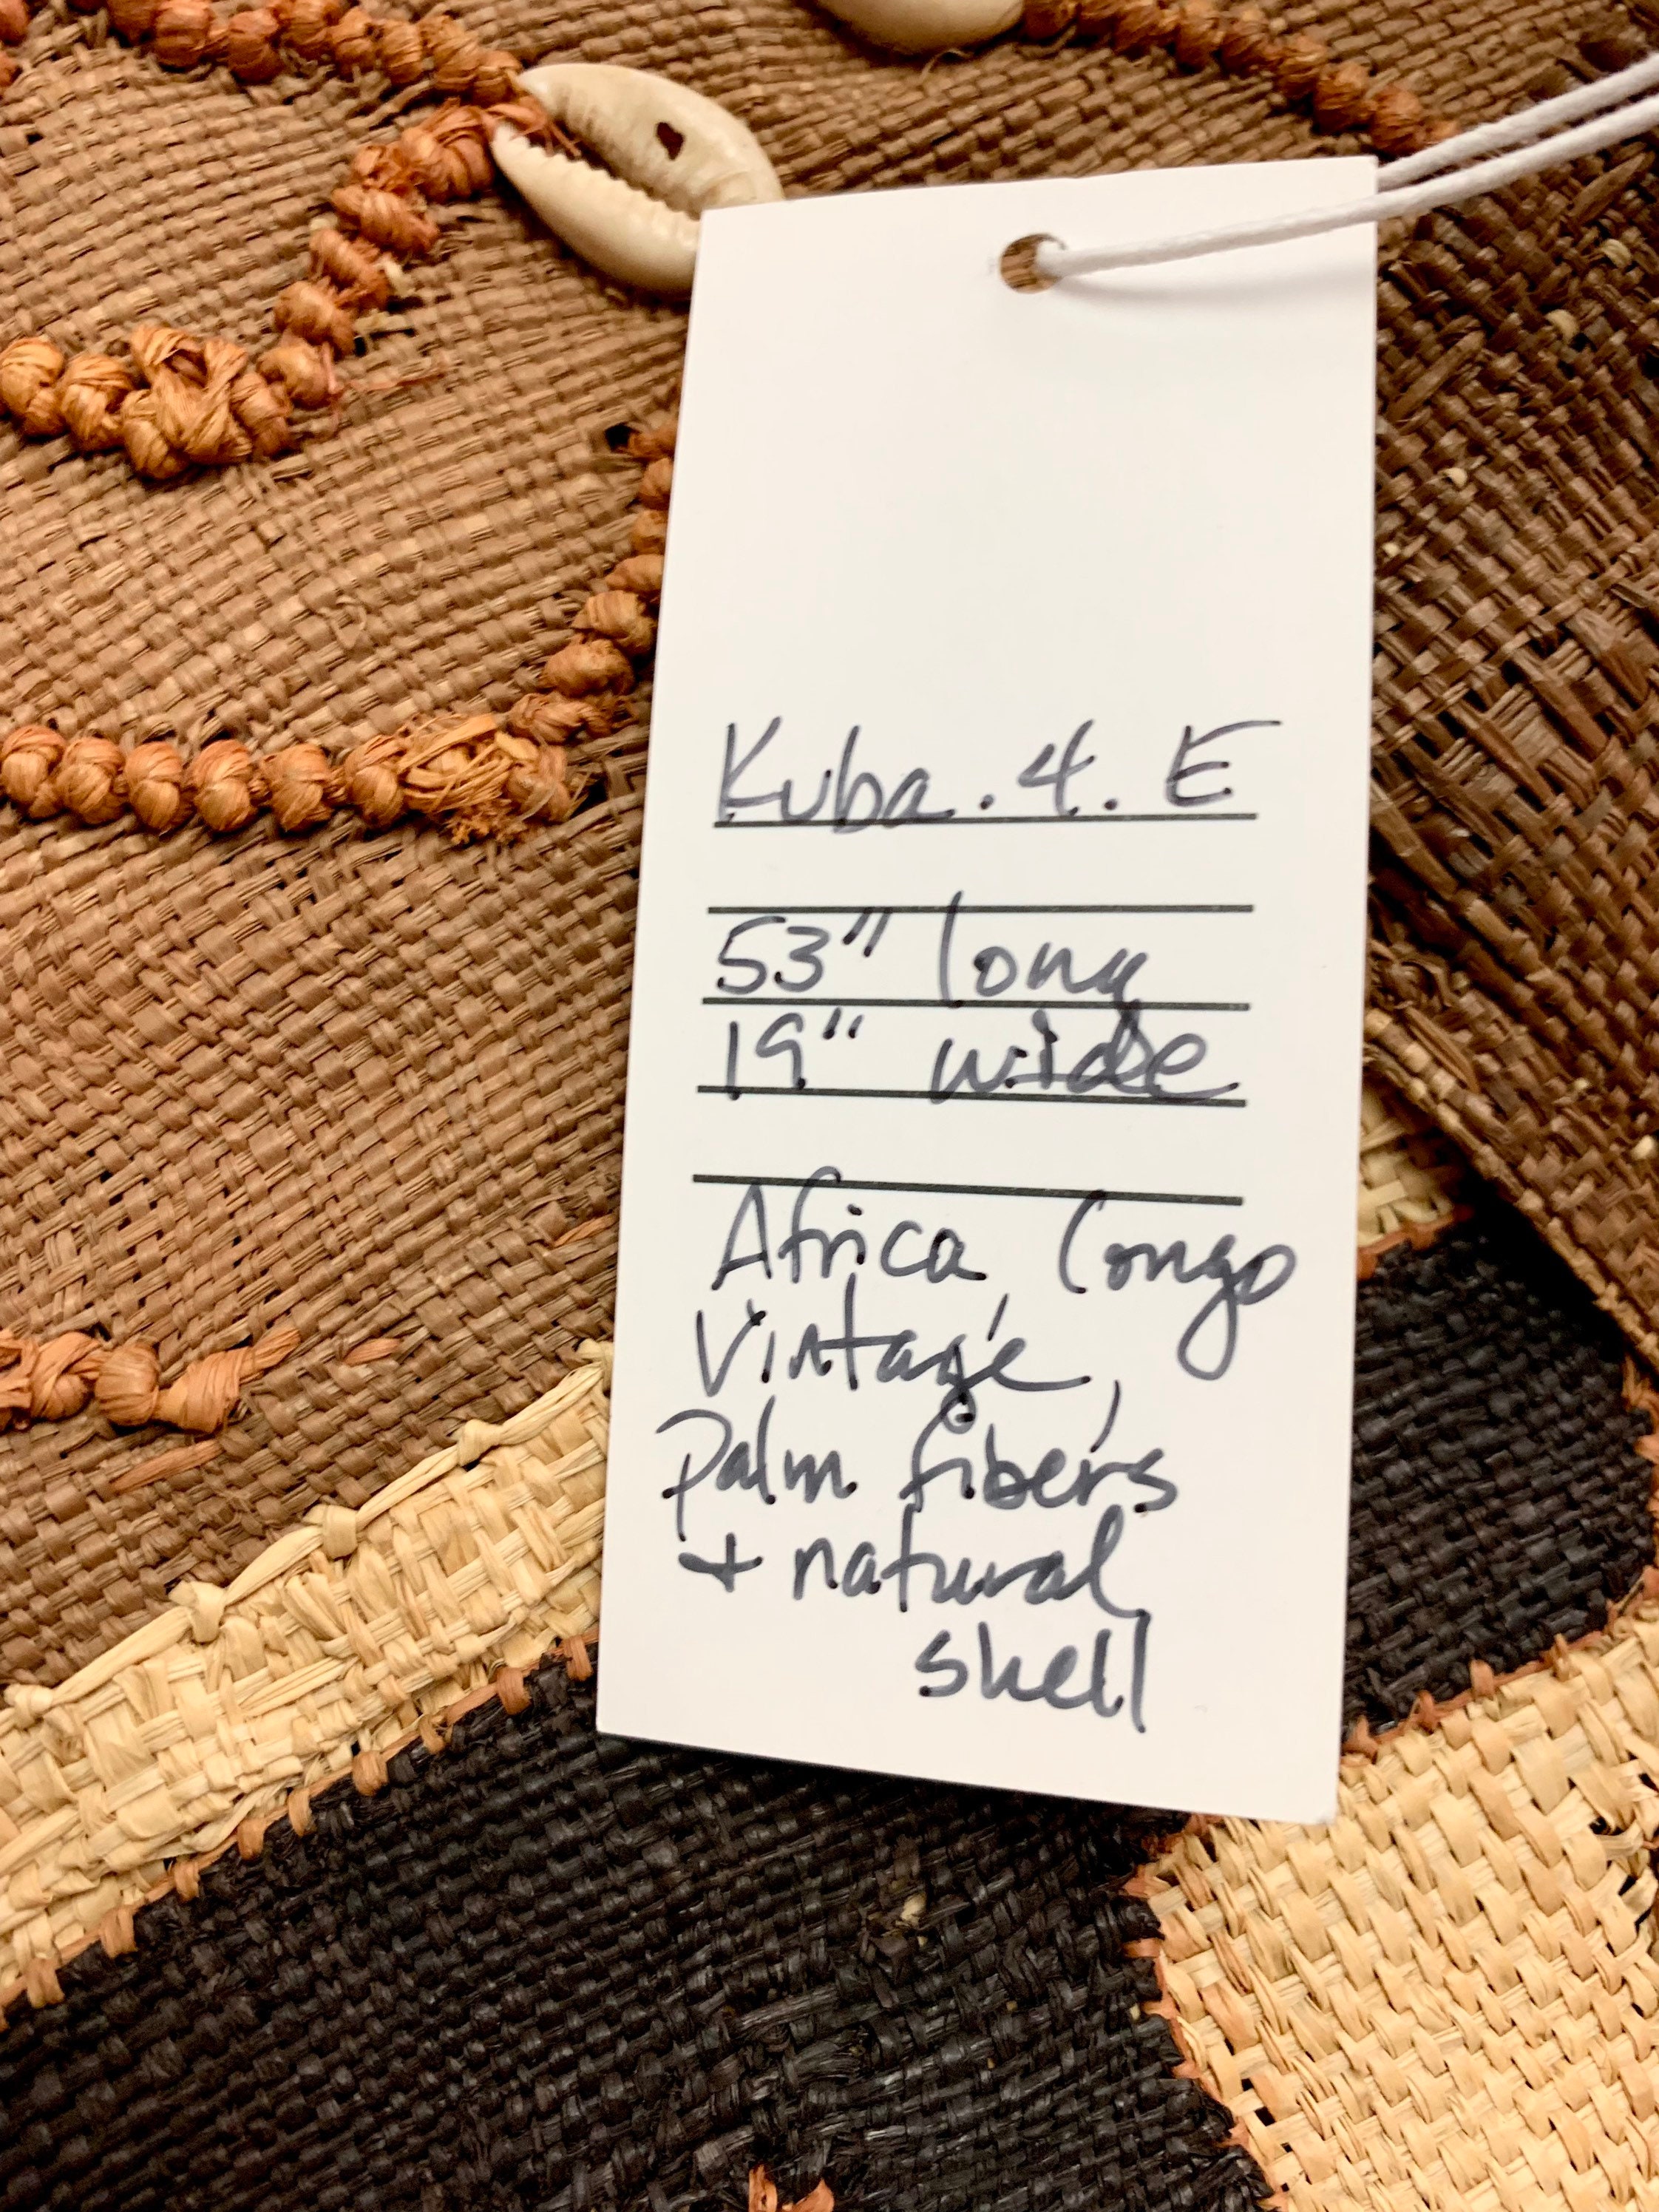 Kuba. 4. E
53" long
19" wide
Africa, Congo
Vintage,
Palm fibers
+ natural
shell